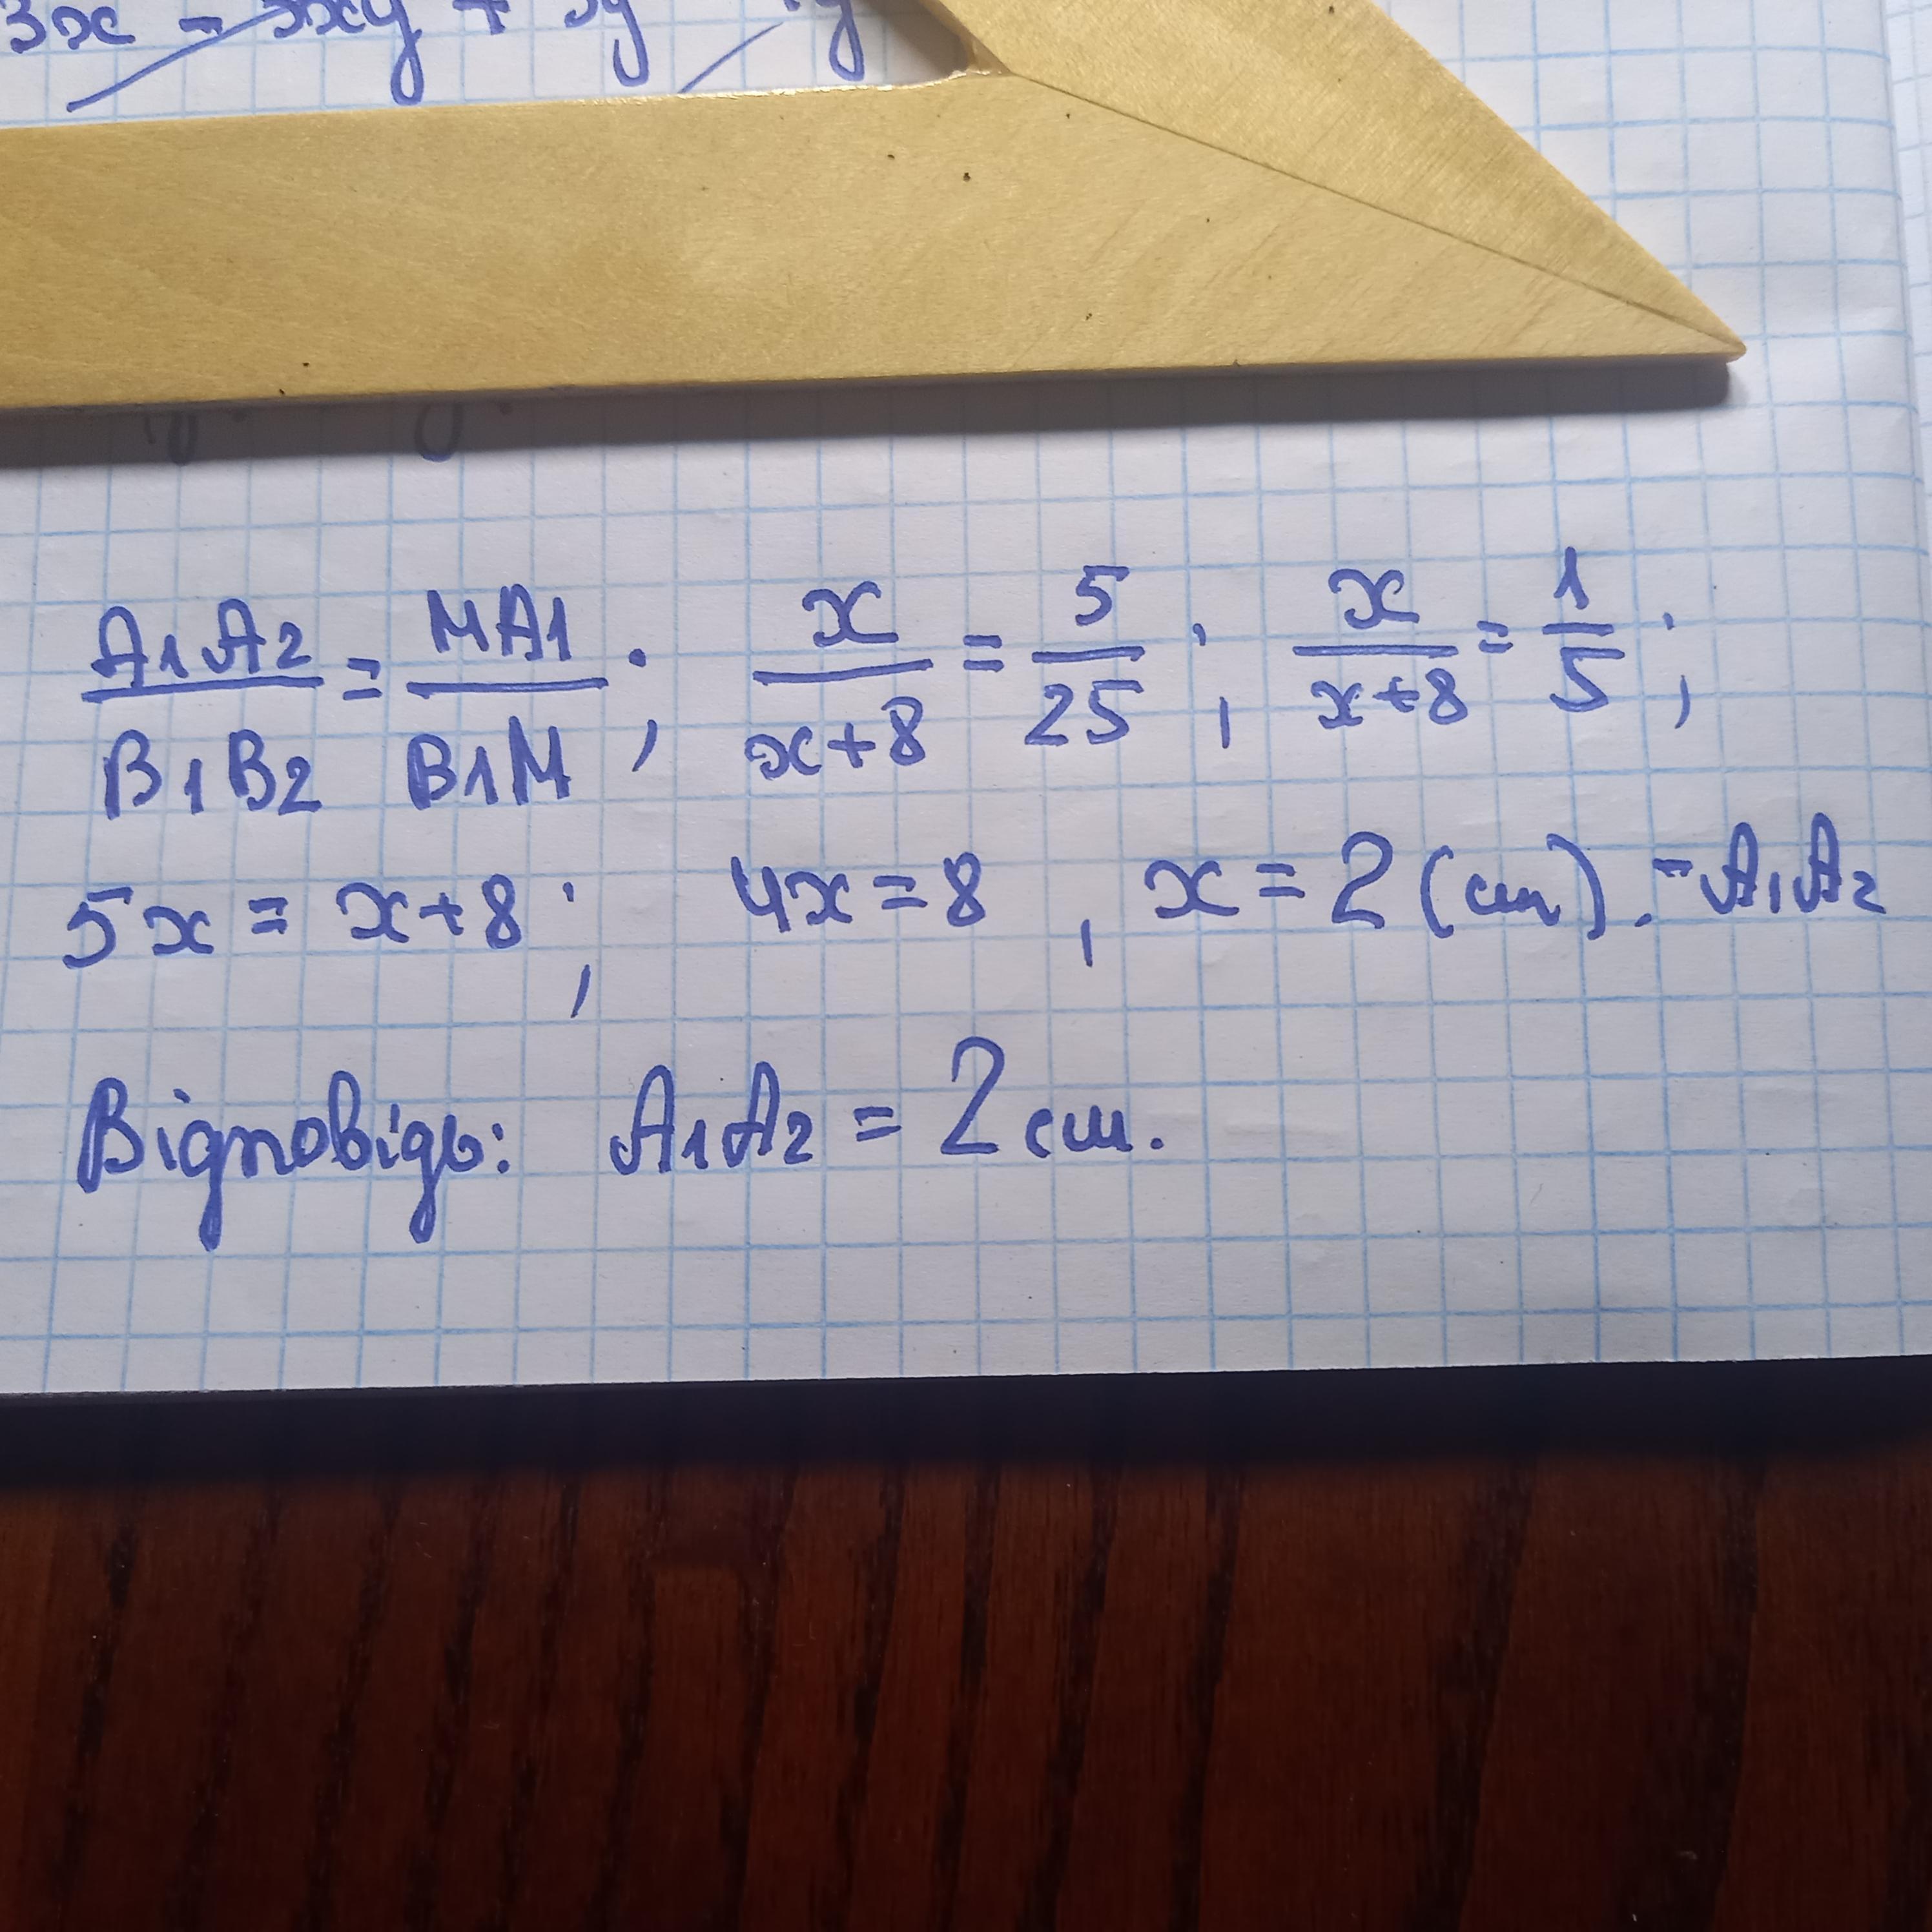 3x - 3xy + 3y
A₁A₂/B₁B₂ = MA₁/B₁M; x/(x+8) = 5/25; x/(x+8) = 1/5;
5x = x+8; 4x = 8, x = 2 (см). = A₁A₂
Відповідь: A₁A₂ = 2 см.